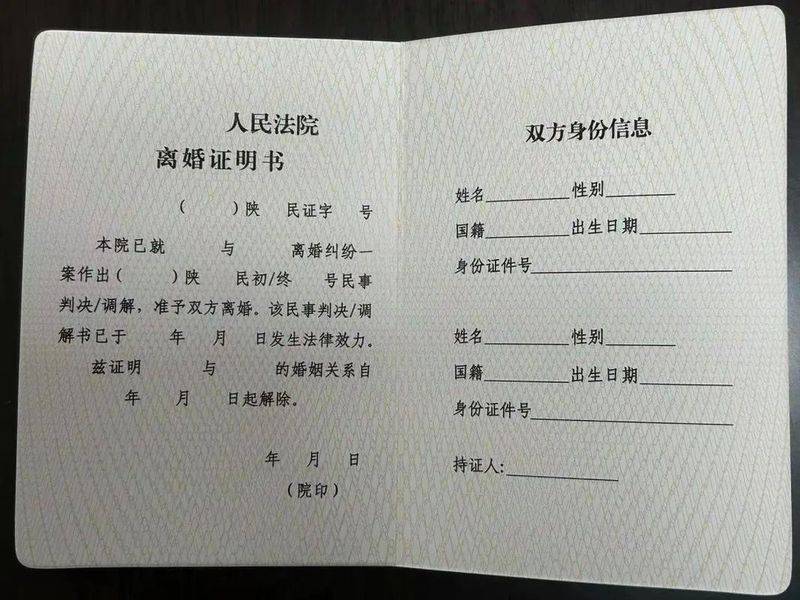 人民法院
离婚证明书
（ ）陕 民证字 号
本院已就 与 离婚纠纷一
案作出（ ）陕 民初/终 号民事
判决/调解，准予双方离婚。该民事判决/调
解书已于 年 月 日发生法律效力。
兹证明 与 的婚姻关系自
年 月 日起解除。
年 月 日
（院印）
双方身份信息
姓名________ 性别________
国籍________ 出生日期________
身份证件号________
姓名________ 性别________
国籍________ 出生日期________
身份证件号________
持证人:________